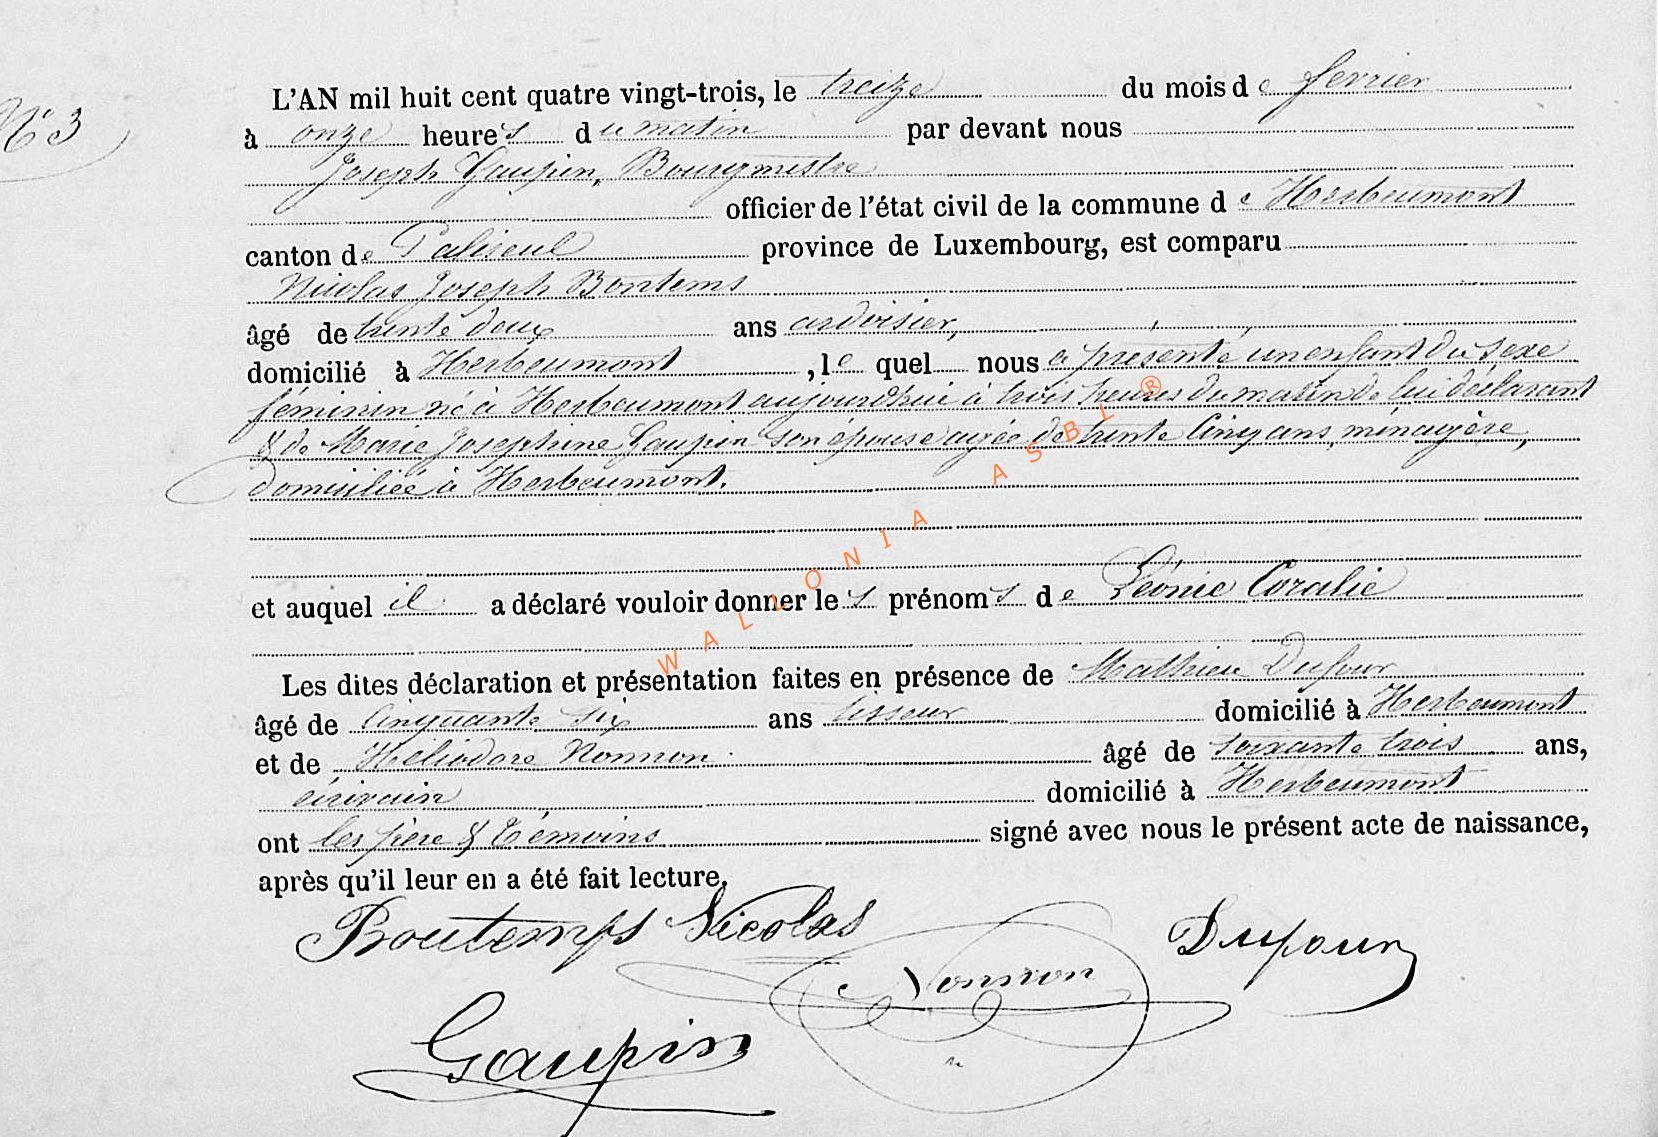 N° 3
L'AN mil huit cent quatre vingt-trois, le treize du mois de fevrier
à onze heures du matin par devant nous
Joseph Gaupin, Bourgmestre
officier de l'état civil de la commune de Herbeumont
canton de Paliseul province de Luxembourg, est comparu
Nicolas Joseph Bontems
âgé de trente deux ans ardoisier,
domicilié à Herbeumont, lequel nous a présenté un enfant du sexe
féminin né à Herbeumont aujourd'hui à trois heures du matin de lui déclarant
& de Marie Josephine Gaupin son épouse agée de trente cinq ans, ménagère,
domiciliée à Herbeumont.
et auquel il a déclaré vouloir donner les prénoms de Léonie Coralie
Les dites déclaration et présentation faites en présence de Mathieu Dufour
âgé de cinquante six ans tisseur domicilié à Herbeumont
et de Héliodore Nonnon âgé de soixante trois ans,
écrivain domicilié à Herbeumont
ont les père & témoins signé avec nous le présent acte de naissance,
après qu'il leur en a été fait lecture.
Boutemps Nicolas
Nonnon
Dufour
Gaupin
WALLONIA ASBL ®